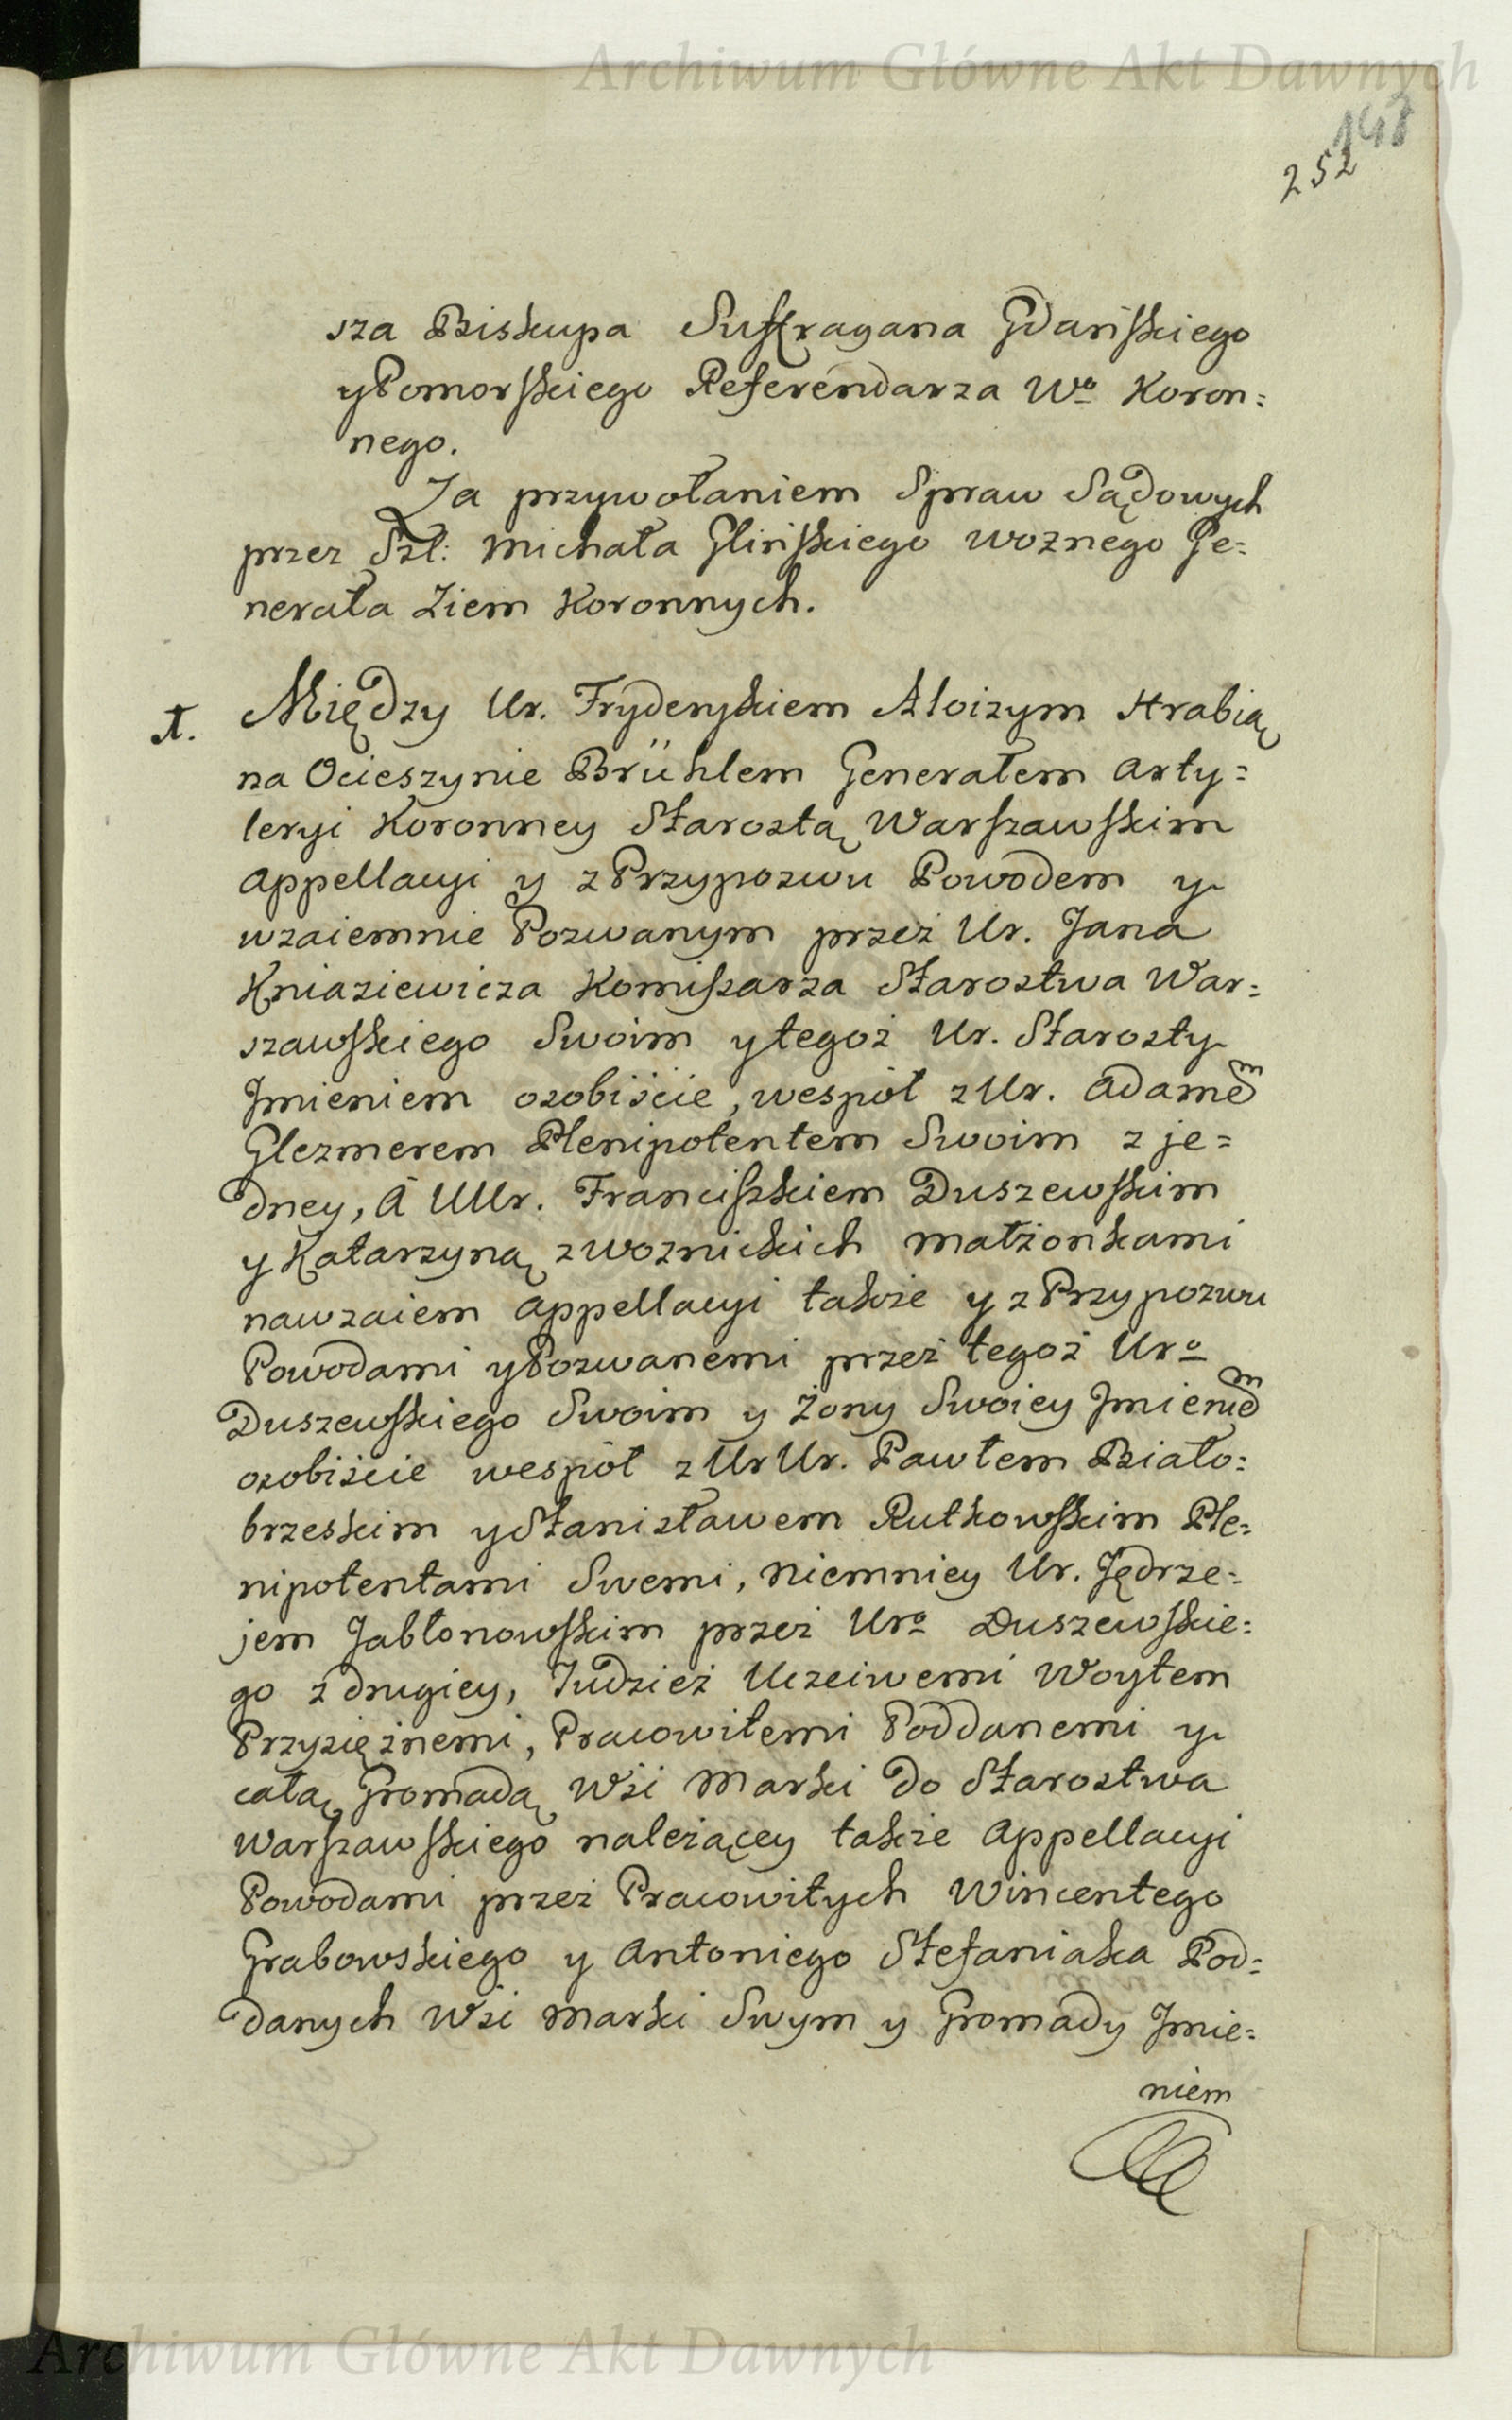 Archiwum Główne Akt Dawnych
148
252
sza Biskupa Suffragana Gdańskiego
y Pomorskiego Referendarza Wo Koron=
nego.
Za przywołaniem Spraw Sądowych
przez Szl: Michała Glińskiego woznego Ge=
nerała Ziem Koronnych.
A. Między Ur. Fryderykiem Aloizym Hrabią
na Ocieszynie Brühlem Generałem Arty=
leryi Koronney Starostą Warszawskim
Appellacyi y z Przypozwu Powodem y
wzaiemnie Pozwanym przez Ur. Jana
Kniaziewicza Komissarza Starostwa War=
szawskiego Swoim y tegoż Ur. Starosty
Jmieniem osobiście, wespół z Ur. Adamem
Glezmerem Plenipotentem Swoim z je=
dney, A UUr. Franciszkiem Duszewskim
y Katarzyną z Woznickich małżonkami
nawzaiem Appellacyi także y z Przypozwu
Powodami y Pozwanemi przez tegoż Uro
Duszewskiego Swoim y Żony Swoiey Jmieniem
osobiście wespół z Ur Ur. Pawłem Biało=
brzeskim y Stanisławem Rutkowskim Ple=
nipotentami Swemi, niemniey Ur. Jędrze=
jem Jabłonowskim przez Uro Duszewskie=
go z drugiey, Tudzież Uczciwemi Woytem
Przysiężnemi, Pracowitemi Poddanemi y
całą Gromadą Wsi Marki do Starostwa
Warszawskiego należącey także Appellacyi
Powodami przez Pracowitych Wincentego
Grabowskiego y Antoniego Stefaniaka Pod=
danych Wsi Marki Swym y Gromady Jmie=
niem
Archiwum Główne Akt Dawnych